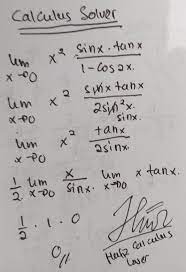 Calculus Solver
lim x→0 x² sinx . tanx / 1 - cos2x.
lim x→0 x² sinx tanx / 2sin²x.
lim x→0 x² tanx / 2sinx.
1/2 lim x→0 x / sinx. lim x→0 x tanx.
1/2 . 1 . 0
0//
Hafiz Calculus
Lover